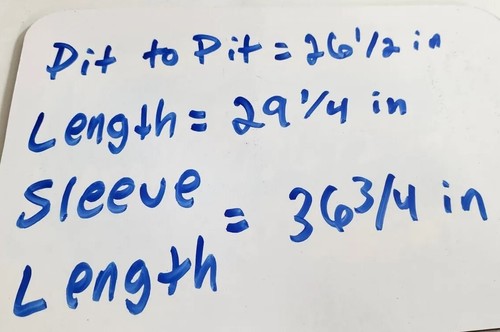 Pit to Pit = 26 1/2 in
Length = 29 1/4 in
Sleeve
Length = 36 3/4 in